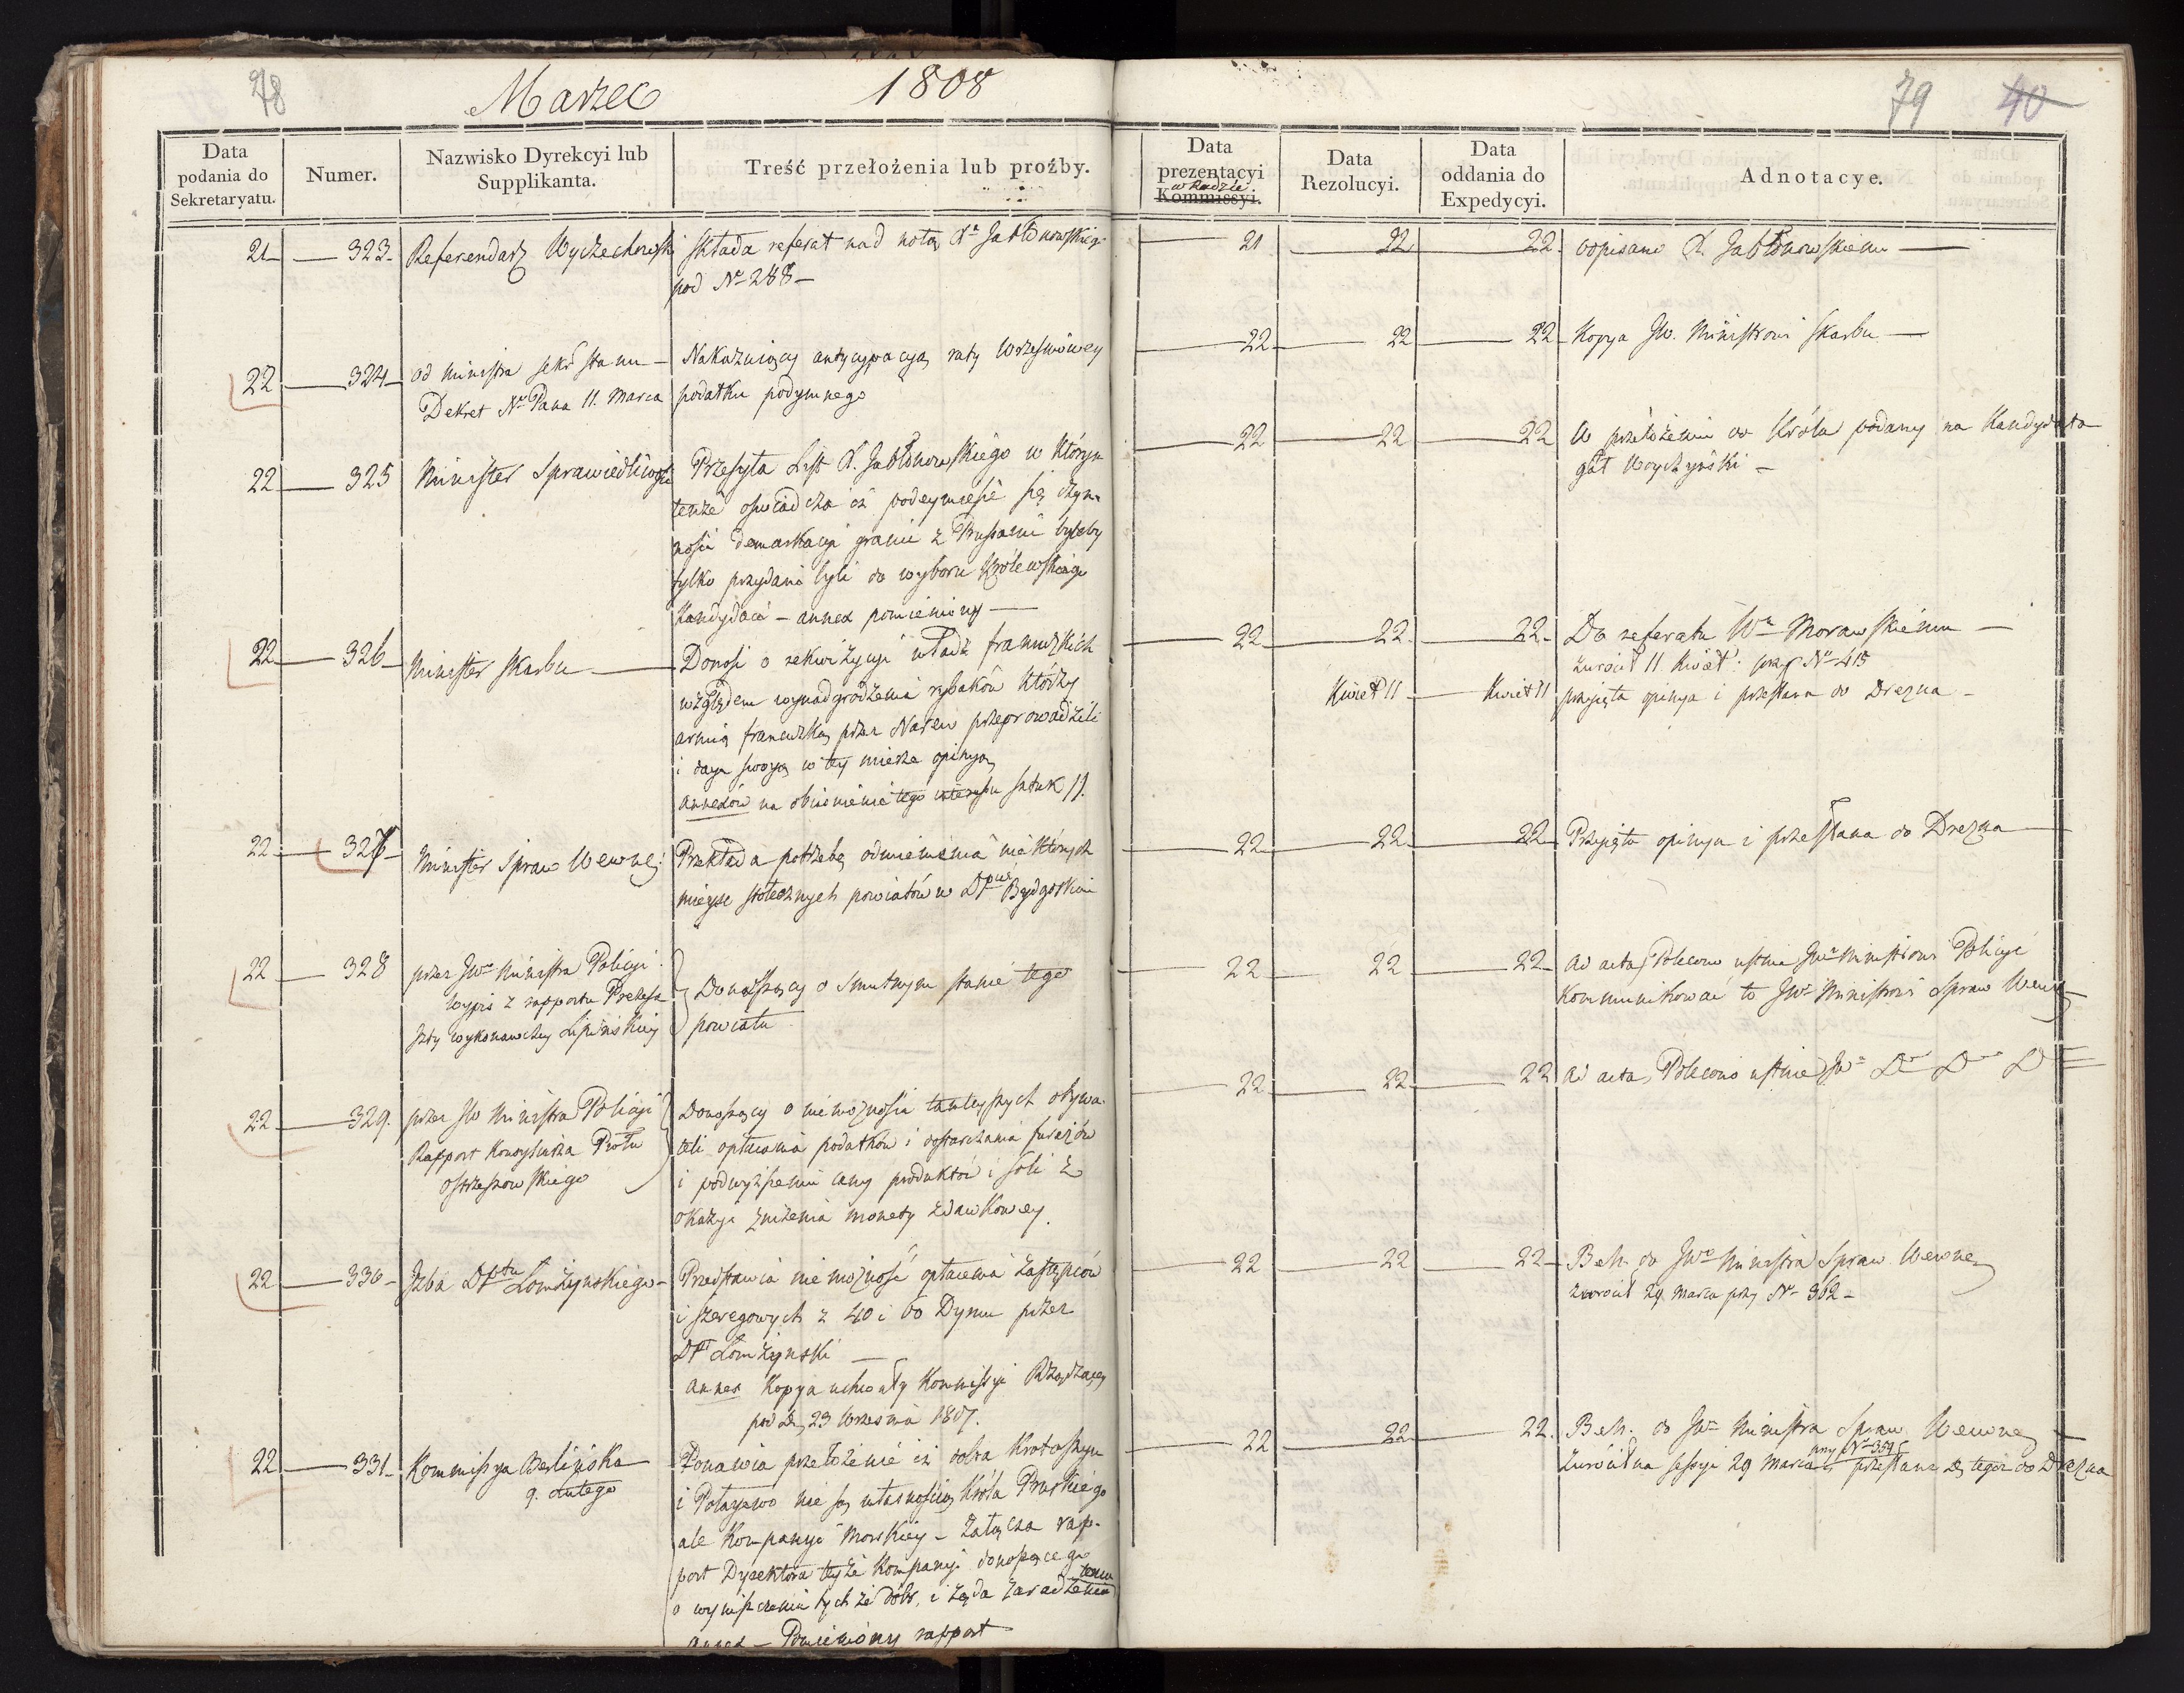 78
Marzec 1808
79 40
Data podania do Sekretaryatu.
Numer.
Nazwisko Dyrekcyi lub Supplikanta.
Treść przełożenia lub proźby.
Data prezentacyi w Radzie. Kommissyi.
Data Rezolucyi.
Data oddania do Expedycyi.
Adnotacye.
21 — 323 — Referendarz Wyczechowski
składa referat nad notą X. Jabłonowskiego
pod Nr 288 —
21 22 22. odpisano X. Jabłonowskiemu —
22 — 324 — od Ministra sekr. stanu —
Dekret Nr Pana 11. Marca
Nakazuiący antycypacyą raty Wrześniowey
podatku podymnego
22 22 22 Kopya JW. Ministrowi Skarbu —
22 — 325 Minister Sprawiedliwości
Przesyła List X. Jabłonowskiego w którym
tenże oświadcza iż podeymiesię się czyn-
ności demarkacyi granic z Prusami byleby
tylko przydani byli do wyboru Królewskiego
Kandydaci — annex pomieniony —
22 22 22 W przełożeniu do Króla podany na Kandydata
gał Woyczyński —
22 — 326 — Minister Skarbu —
Donosi o rekwizycyi władz francuzkich
względem wynadgrodzenia rybaków którzy
armią francuzką przez Narew przeprowadzili
i daje swoyą w tey mierze opinyą
annexów na obiaśnienie tego interessu sztuk 11.
22 22. 22. Do referatu W. Morawskiemu —
zwrócił 11. Kwiet: przy Nr 415
Kwiet 11 — Kwiet 11 przyięta opinya i przesłana do Drezna —
22 — 327 — Minister Spraw Wewnę:
Przekłada potrzebę odmienienia niektórych
mieysc stołecznych powiatów w Dpcie Bydgoskim
22 22. 22 Przyięta opinya i przesłana do Drezna —
22 — 328 przez JW. Ministra Policyi
wypis z rapportu Prezesa
Izby wykonawczey Lipińskiey
Donoszący o smutnym stanie tego
powiatu
22 22 22 ad acta, Polecono ustnie JW. Ministrowi Policyi
Kommunikować to JW. Ministrowi Spraw Wewnę
22 — 329. przez JW Ministra Policyi
Rapport Konsyliarza Pttu
Ostrzeszowskiego
Donoszący o niemożności tamteyszych obywa-
teli opłacania podatków i dostarczania furażów
i podwyższeniu ceny produktów i soli z
okazyi zniżenia monety zdawkowey.
22 22 22 ad acta, Polecono ustnie JW. D D D
22 — 330 — Izba Dpttu Łomżyńskiego —
Przedstawia niemożność opłacenia zastępców
i szeregowych z 40 i 60 Dymu przez
Dpt Łomżyński —
annex Kopya uchwały Kommissyi Rządzącey
pod d. 23 Września 1807.
22 22 22 — B.M. do JW. Ministra Spraw Wewnę
zwrócił 29 Marca przy Nr 362 —
22 — 331 — Kommissya Berlińska
9. Lutego
Ponawia przełożenie iż dobra Krotoszyn
i Potarzewo nie są własnością Króla Pruskiego
ale Kompanyi Morskiey — Załącza rap-
port Dyrektora teyże Kompanyi donoszącego
o wyniszczeniu tychże dóbr, i żąda zaradzenia temu
annex — Pomieniony rapport
22 22 22. B.M. do JW. Ministra Spraw Wewnę —
zwrócił na sessyi 29 Marca przy Nr 359 przesłane d. tegoż do Drezna